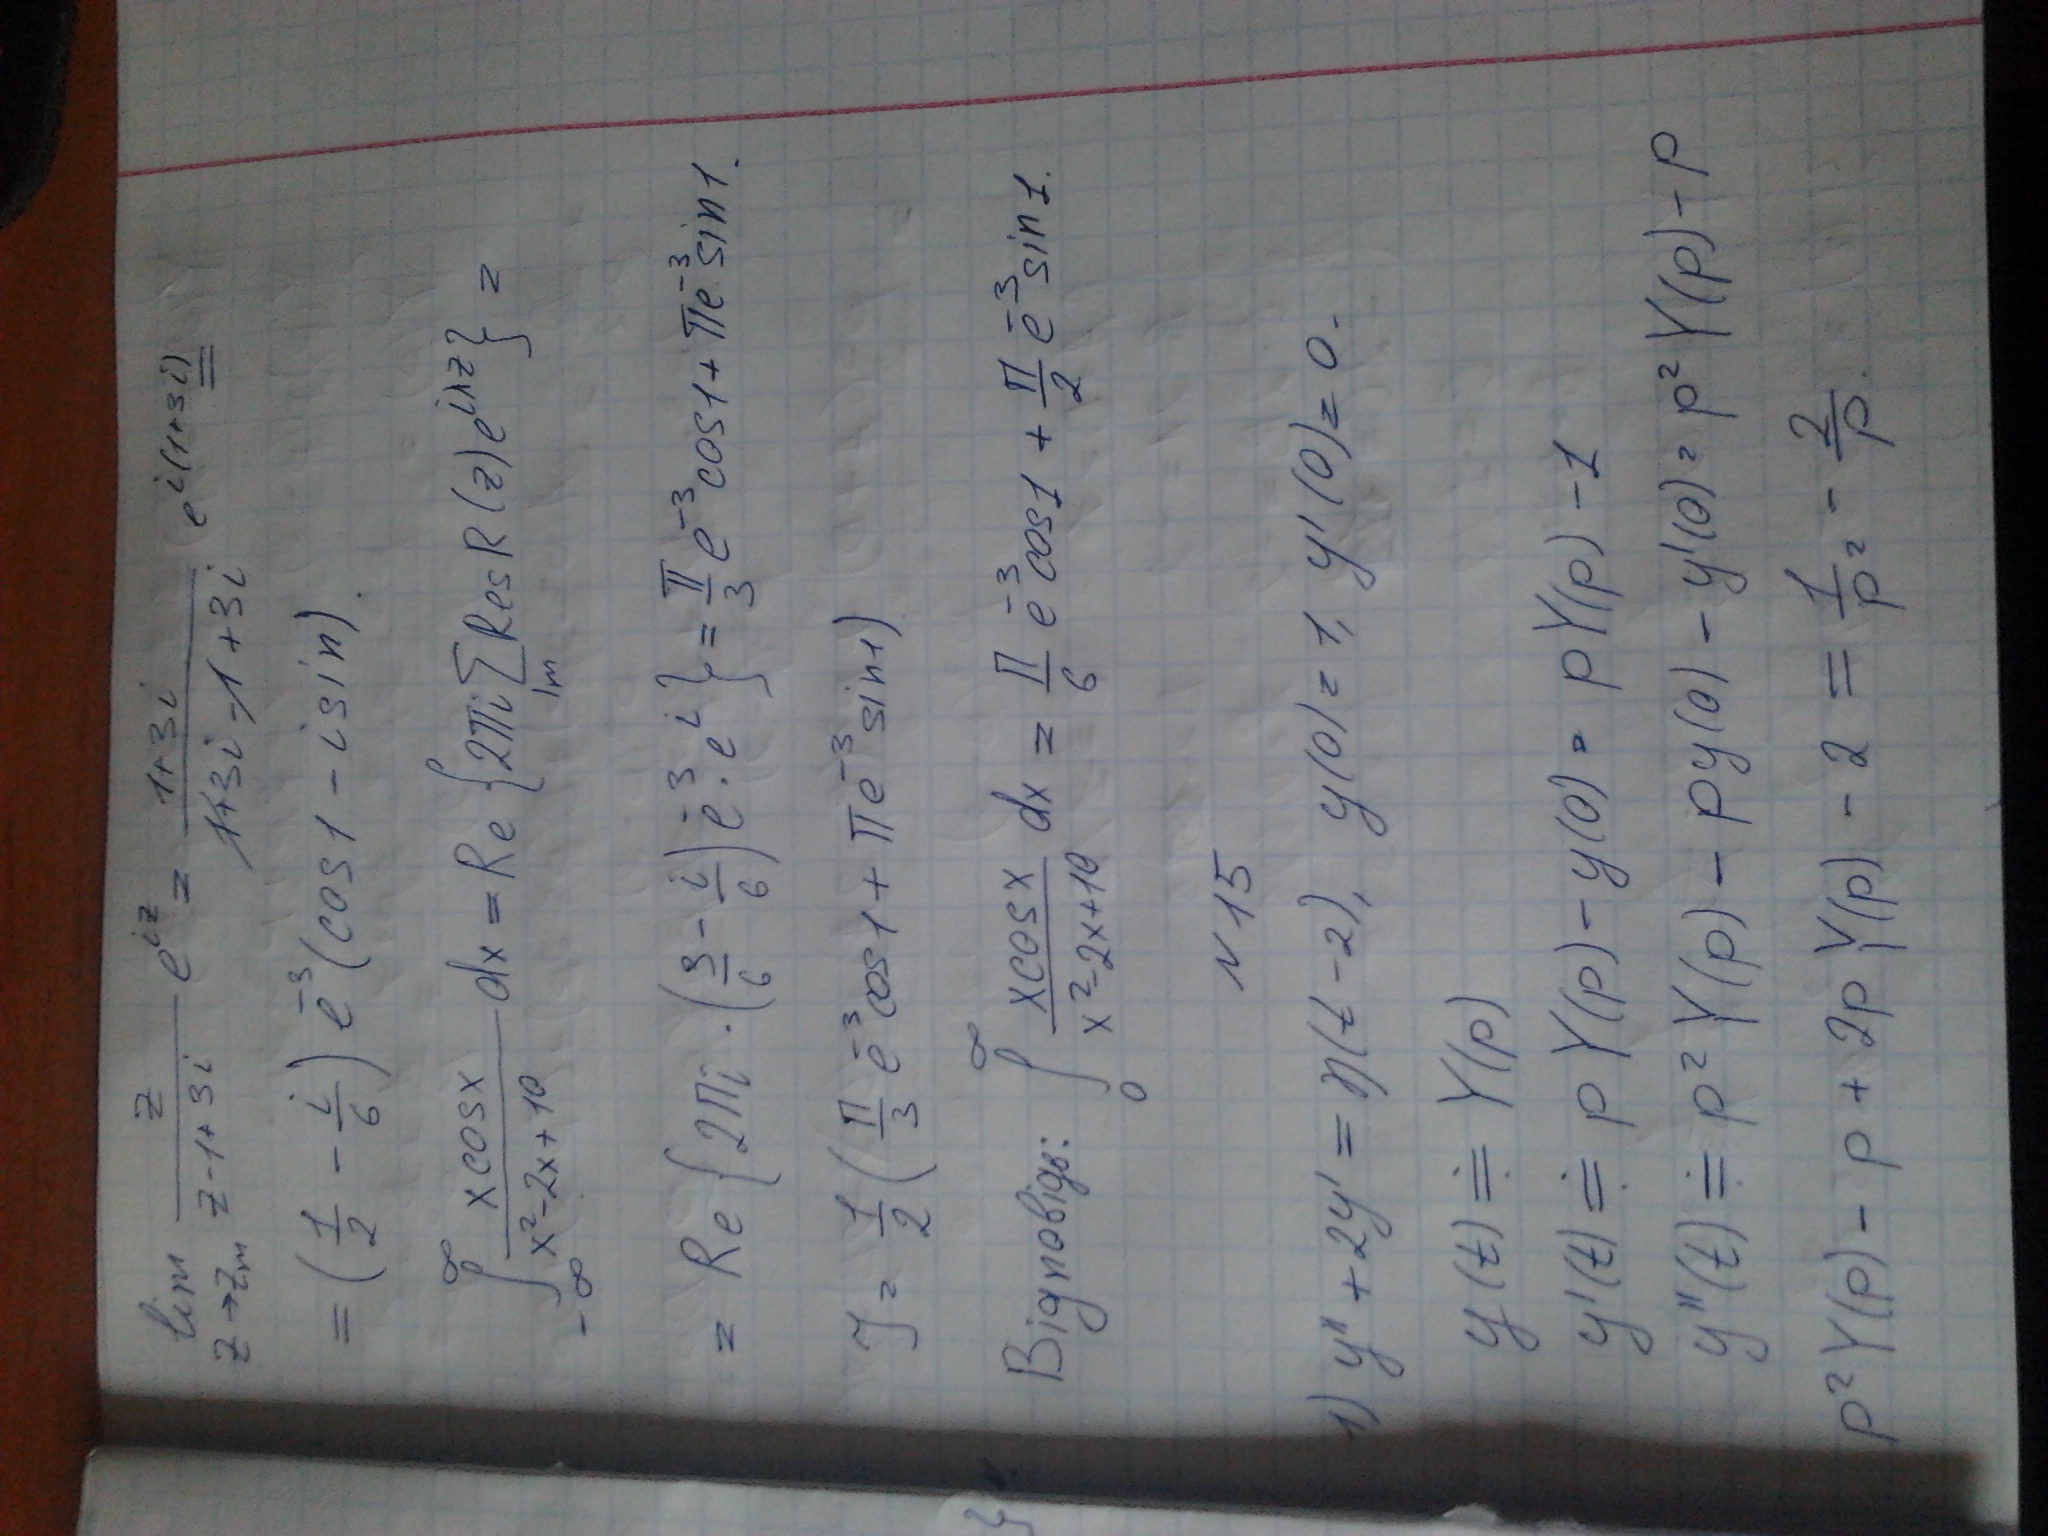 lim z→zₘ z/(z-1+3i) e^{iz} = (1+3i)/(1+3i-1+3i) e^{i(1+3i)} =
= (1/2 - i/6) e^{-3} (cos1 - i sin).
∫_{-∞}^{∞} xcosx/(x²-2x+10) dx = Re {2πi ∑_{Im} Res R(z) e^{iλz}} =
= Re {2πi · (3/6 - i/6) e^{-3} · e^{i}} = π/3 e^{-3} cos1 + πe^{-3} sin1.
J = 1/2 (π/3 e^{-3} cos1 + πe^{-3} sin1)
Відповідь: ∫_{0}^{∞} xcosx/(x²-2x+10) dx = π/6 e^{-3} cos1 + π/2 e^{-3} sin1.
N 15
1) y'' + 2y' = η(t-2), y(0) = 1, y'(0) = 0.
y(t) ≑ Y(p)
y'(t) ≑ pY(p) - y(0) = pY(p) - 1
y''(t) ≑ p²Y(p) - py(0) - y'(0) = p²Y(p) - p
p²Y(p) - p + 2pY(p) - 2 = 1/p² - 2/p.